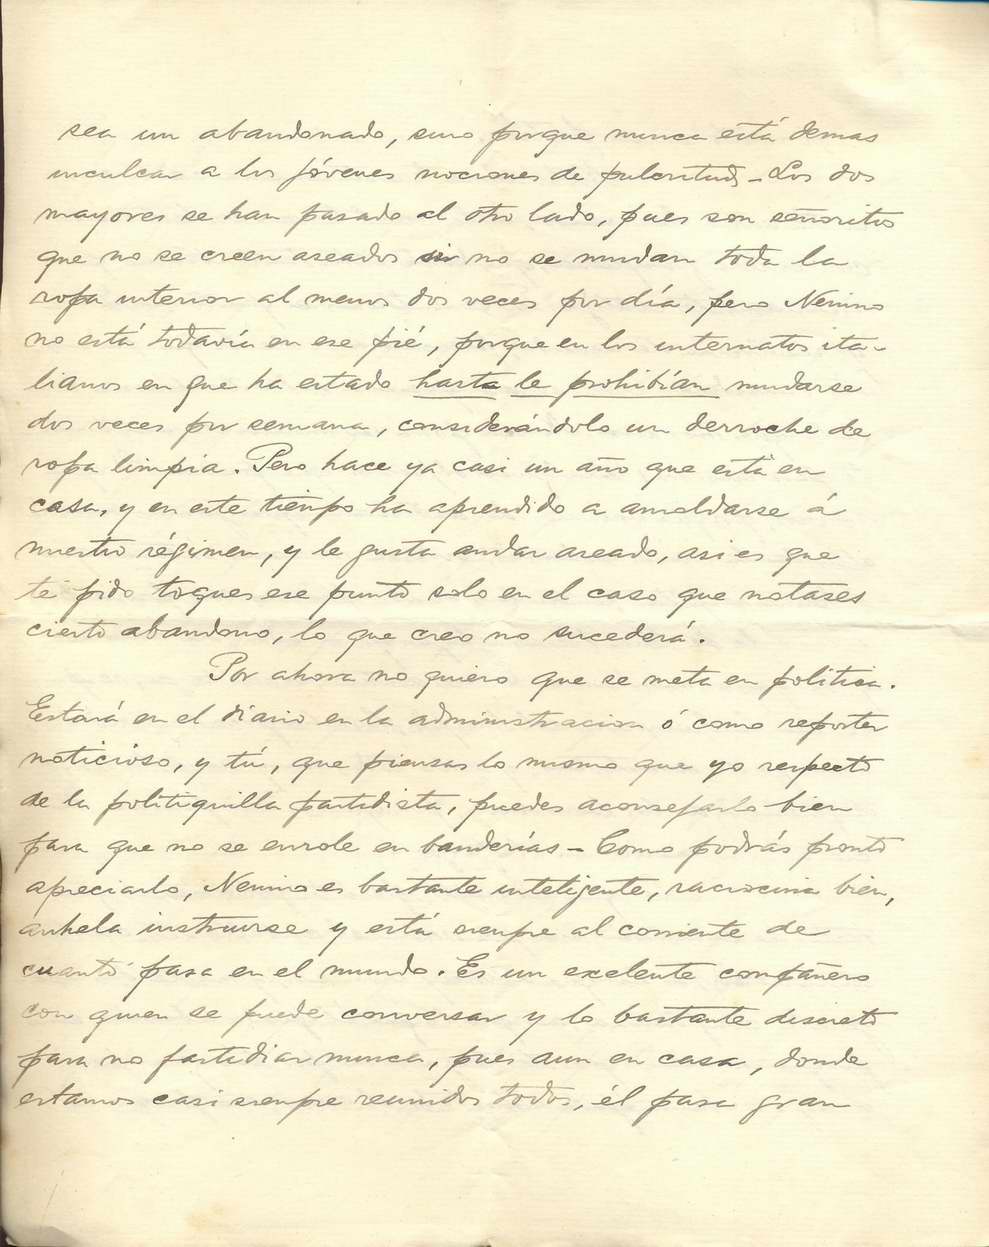 sea un abandonado, sino porque nunca está demas
inculcar a los jóvenes nociones de pulcritud - Los dos
mayores se han pasado al otro lado, pues son señoritos
que no se creen aseados si no se mudan toda la
ropa interior al menos dos veces por día, pero Nenino
no está todavía en ese pié, porque en los internatos ita-
lianos en que ha estado hasta le prohibían mudarse
dos veces por semana, considerándolo un derroche de
ropa limpia. Pero hace ya casi un año que está en
casa, y en este tiempo ha aprendido a amoldarse á
nuestro régimen, y le gusta andar aseado, asi es que
te pido toques ese punto solo en el caso que notases
cierto abandono, lo que creo no sucederá.
Por ahora no quiero que se meta en política.
Estará en el diario en la administracion ó como reporter
noticioso, y tú, que piensas lo mismo que yo respecto
de la politiquilla partidista, puedes aconsejarlo bien
para que no se enrole en banderías - Como podrás pronto
apreciarlo, Nenino es bastante inteligente, raciocina bien,
anhela instruirse y está siempre al corriente de
cuanto pasa en el mundo. Es un excelente compañero
con quien se puede conversar y lo bastante discreto
para no fastidiar nunca, pues aun en casa, donde
estamos casi siempre reunidos todos, él pasa gran